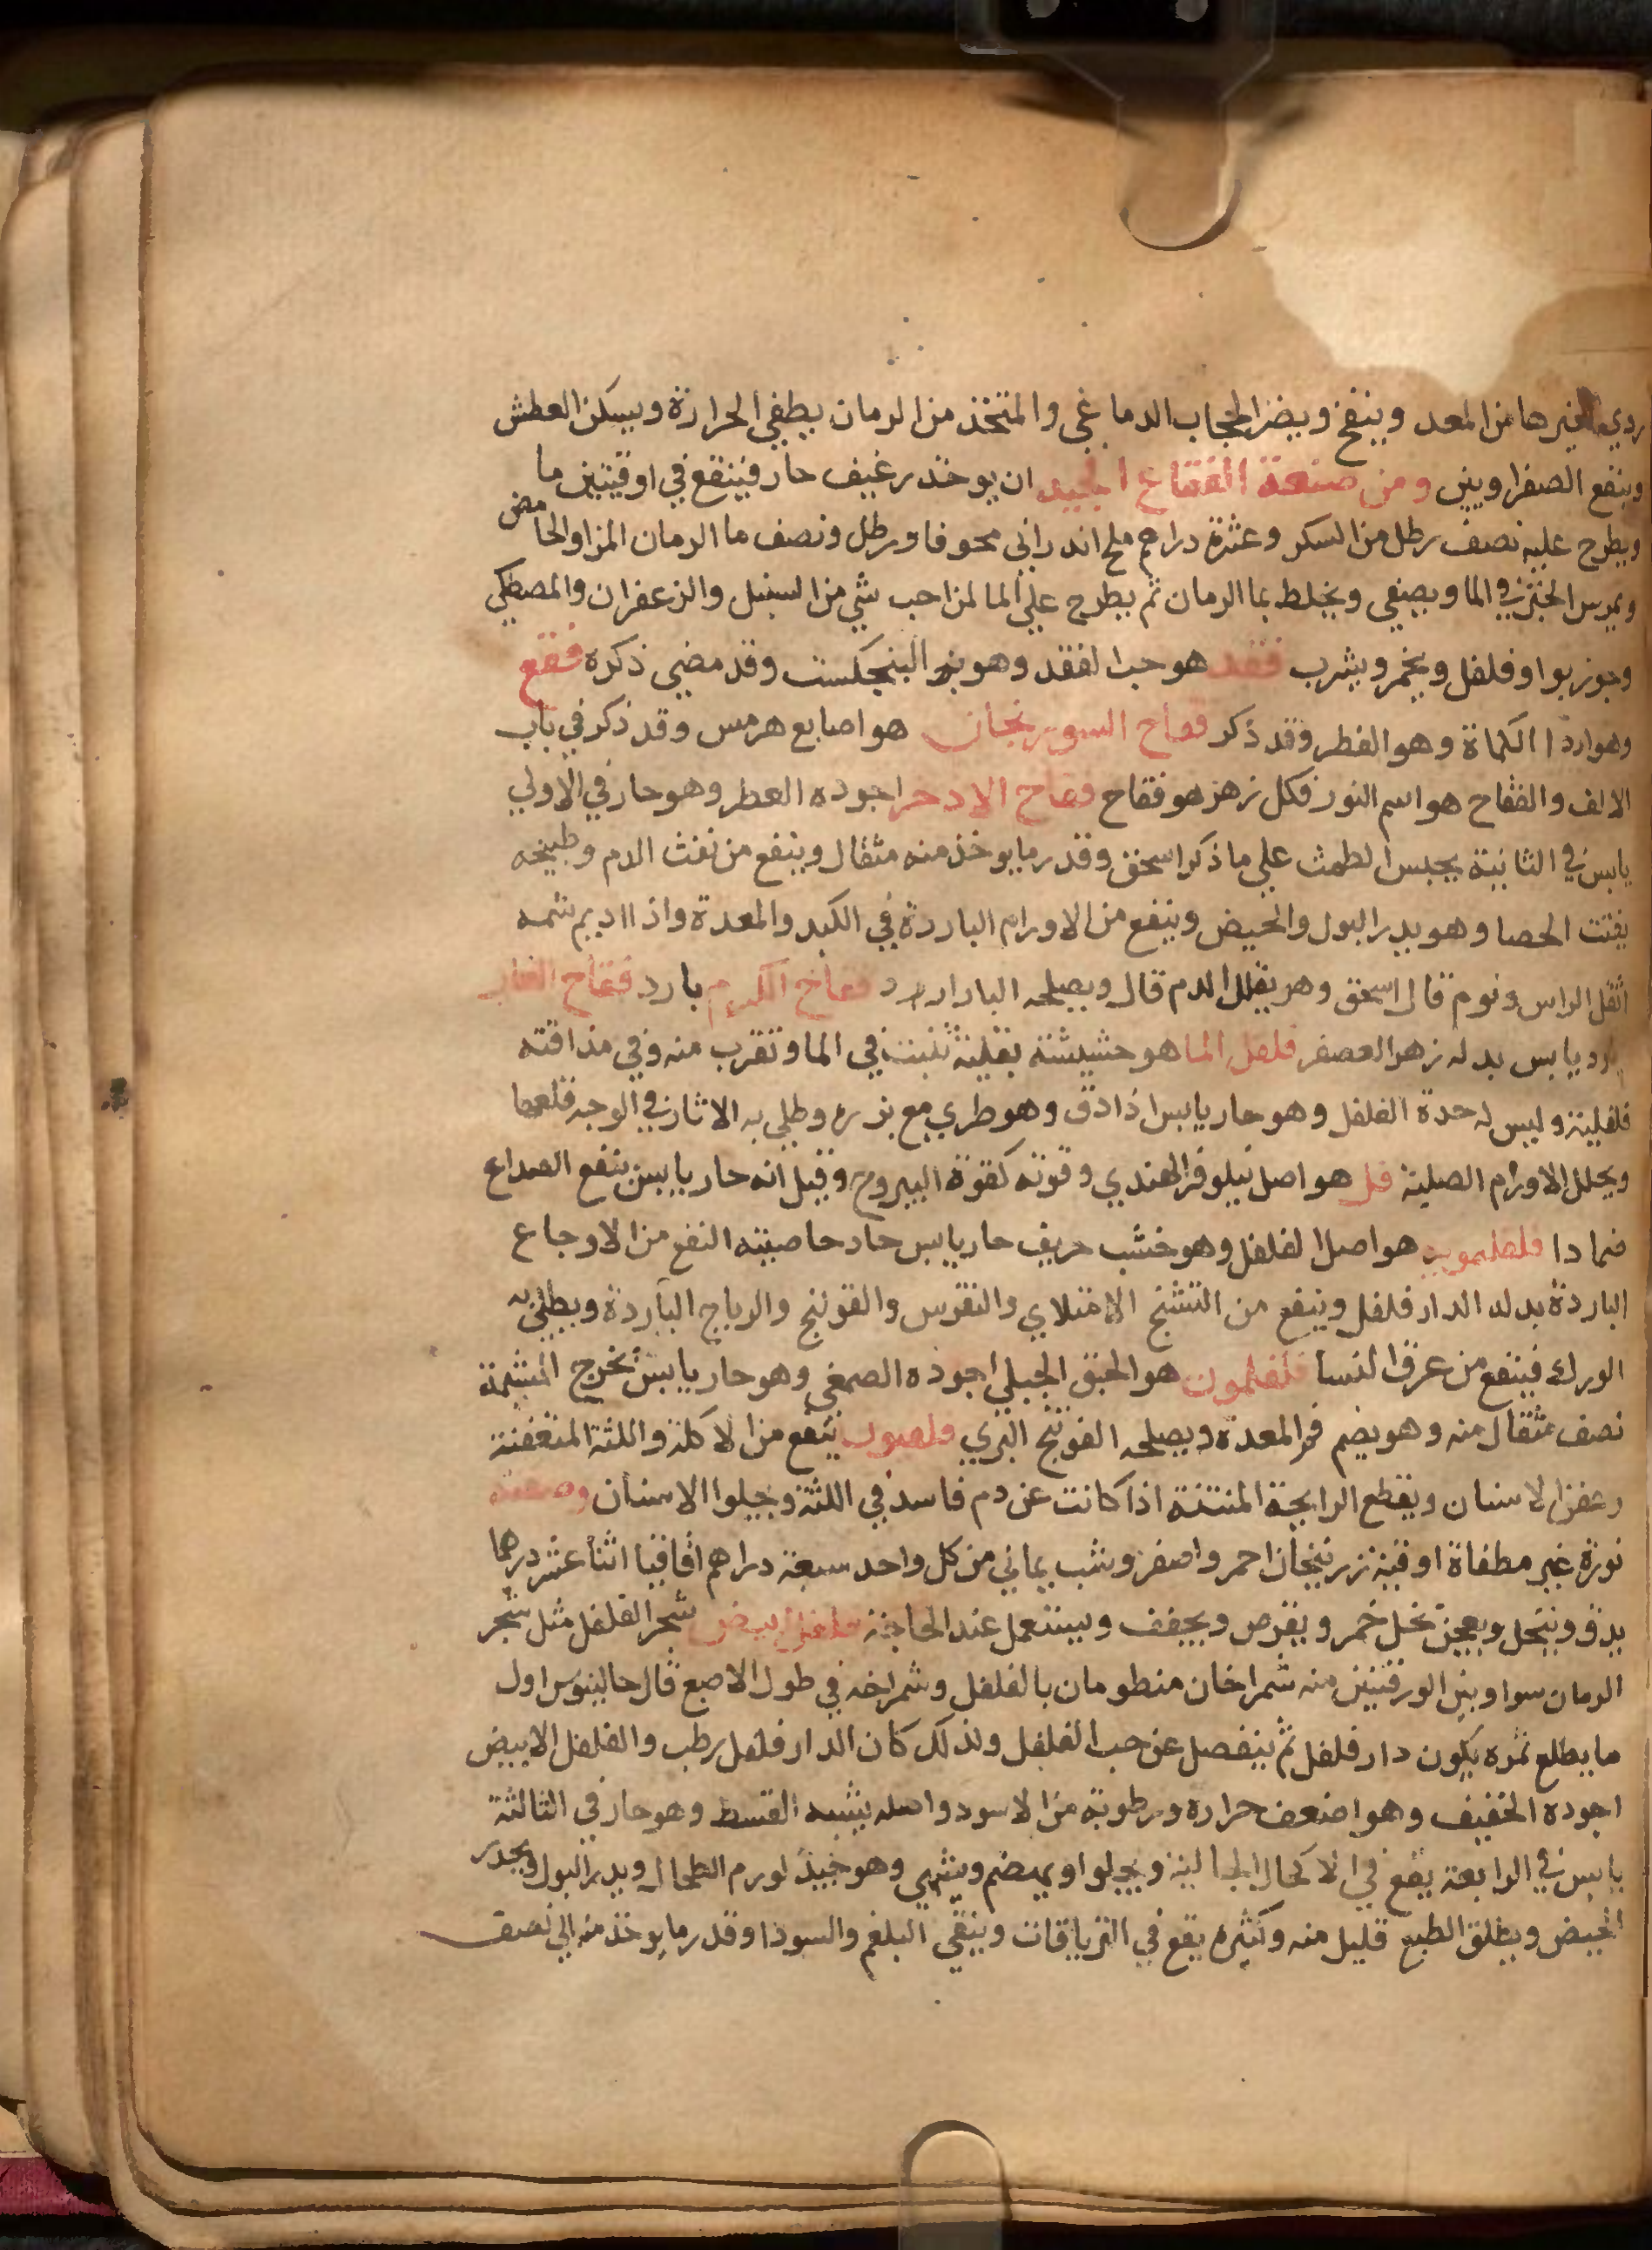 ردي لغيرها من المعد وينفخ ويضر الحجاب الدماغي والمتخذ من الرمان يطفي الحرارة ويسكن العطش
وينفع الصفراويين ومن صنعة الفقاع الجيد ان يوخذ رغيف حار فينقع في اوقيتين ما
ويطرح عليه نصف رطل من السكر وعشرة دراهم ملح اندراني محوفا ورطل ونصف ما الرمان المز او الحامض
ويمرس الخبز في الما ويصفي ويخلط بما الرمان ثم يطرح علي الما لمن احب شي من السنبل والزعفران والمصطكي
وجوزبوا وفلفل ويخمر ويشرب فقد هو حب الفقد وهو بزر البنجكست وقد مضي ذكره فقع
وهو اردا الكماة وهو الفطر وقد ذكر فقاح السورنجان هو اصابع هرمس وقد ذكر في باب
الالف والفقاح هو اسم النور فكل زهر هو فقاح فقاح الادخر اجوده العطر وهو حار في الاولي
يابس في الثانية يحبس الطمث علي ما ذكر اسحق وقدر ما يوخذ منه مثقال وينفع من نفث الدم وطبيخه
يفتت الحصا وهو يدر البول والحيض وينفع من الاورام الباردة في الكبد والمعدة واذا اديم شمه
اثقل الراس ونوم قال اسحق وهو يقلل الدم قال ويصلحه فقاح الكرم بارد فقاح الغار
بارد يابس بدله زهر العصفر فلفل الما هو حشيشة بقلية تنبت في الما وتقرب منه وفي مذاقته
فلفلية وليس له حدة الفلفل وهو حار يابس اذا دق وهو طري مع بزره وطلي به الاثار في الوجه قلعها
ويحلل الاورام الصلبة فل هو اصل نيلوفر الهندي وقوته كقوة اليبروح وقيل انه حار يابس ينفع الصداع
ضمادا فلفلمويه هو اصل الفلفل وهو خشب حريف حار يابس حاد خاصيته النفع من الاوجاع
الباردة بدله الدار فلفل وينفع من التشنج الامتلاي والنقرس والقولنج والرياح الباردة ويطلي به
الورك فينفع من عرق النسا فلفلمون هو الحبق الجبلي اجوده الصمغي وهو حار يابس يخرج المشيمة
نصف مثقال منه وهو يضر فم المعدة ويصلحه الفوتنج البري ينفع من الاكلة واللثة المتعفنة
وعفن الاسنان ويقطع الرايحة المنتنة اذا كانت عن دم فاسد في اللثة ويجلوا الاسنان وصفته
نورة غير مطفاة اوقية زرنيخان احمر واصفر وشب يماني من كل واحد سبعة دراهم اقاقيا اثنا عشر درهما
يدق وينخل ويعجن بخل خمر ويقرص ويجفف ويستعمل عند الحاجة فلفل ابيض شجر الفلفل مثل شجر
الرمان سوا وبين الورقتين منه شمراخان منظومان بالفلفل وشمراخه في طول الاصبع قال جالينوس اول
ما يطلع ثمره يكون دار فلفل ثم ينفصل عن حب الفلفل ولذلك كان الدار فلفل رطب والفلفل الابيض
اجوده الخفيف وهو اضعف حرارة ورطوبة من الاسود واصله يشبه القسط وهو حار في الثالثة
يابس في الرابعة يقع في الاكحال الجالية ويجلوا ويهضم ويشهي وهو جيد لورم الطحال ويدر البول ويحدر
الحيض ويطلق الطبع قليل منه وكثيره يقع في الترياقات وينقي البلغم والسودا وقدر ما يوخذ منه الي نصف